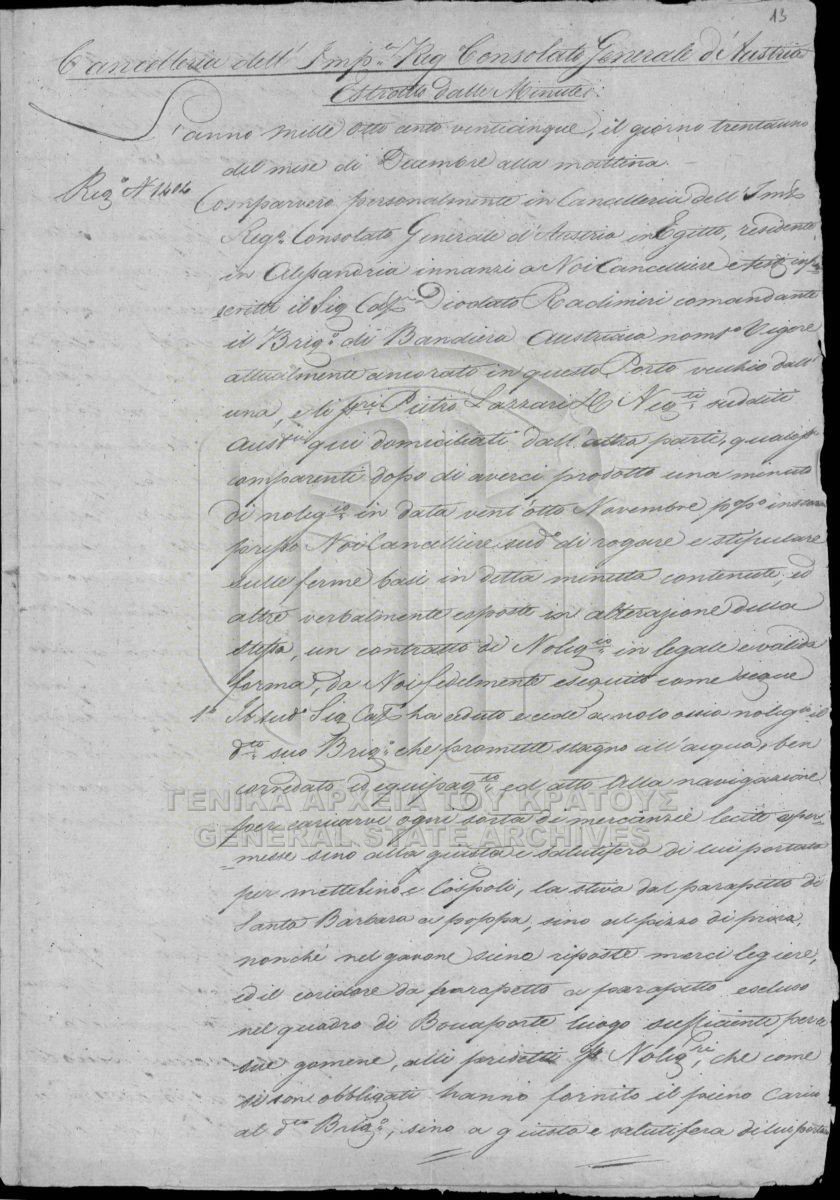 13
Cancelleria dell' Imp.e Reg Consolato Generale d'Austria
Estratto dalle Minute
L'anno mille otto cento venticinque, il giorno trentauno
del mese di Decembre alla mattina
Reg.o N 1404
Comparvero personalmente in Cancelleria dell' Im.e
Reg.o Consolato Generale d'Austria in Egitto, residente
in Alessandria innanzi a Noi Cancelliere e testi infra
scritti il Sig Cap.n Diodato Radimiri comandante
il Brig.o di Bandiera Austriaca nom.to Vigore
attualmente ancorato in questo Porto vecchio dall'
una, e li Pietro Lazzari Neg.ti sudditi
Aust.ci qui domiciliati dall'altra parte, quali
comparenti dopo di averci prodotto una minuta
di nolieg.to in data vent'otto Novembre p.o p.o
presso Noi Cancelliere sud.o di rogare e stipulare
sulle ferme basi in detta minuta contenute, ed
altre verbalmente esposte in alterazione della
stessa, un contratto di Nolieg.to in legale e valida
forma, da Noi fedelmente eseguito come segue
1.o Il sud.o Sig Cap.n ha ceduto e cede a nolo ossia nolieg.o il
d.to suo Brig.o che promette stagno all'acqua, ben
corredato ed equipag.to ed atto alla navigazione
per caricarvi ogni sorta di mercanzie lecite e per=
=messe sino alla giusta e salutifera di lui portata
per Mettelino e Cospoli, la stiva dal parapetto di
Santa Barbara a poppa, sino al pizzo di prora,
nonché nel gavone siene riposte merci legiere,
ed il coridore da parapetto a parapetto escluso
nel quadro di Bonaparte luogo sufficiente per le
sue gomene, alli predetti Nolieg.ri, che come
si son obbligati hanno fornito il pieno carico
al d.to Brig.o, sino a giusta e salutifera di lui portata
ΓΕΝΙΚΑ ΑΡΧΕΙΑ ΤΟΥ ΚΡΑΤΟΥΣ
GENERAL STATE ARCHIVES